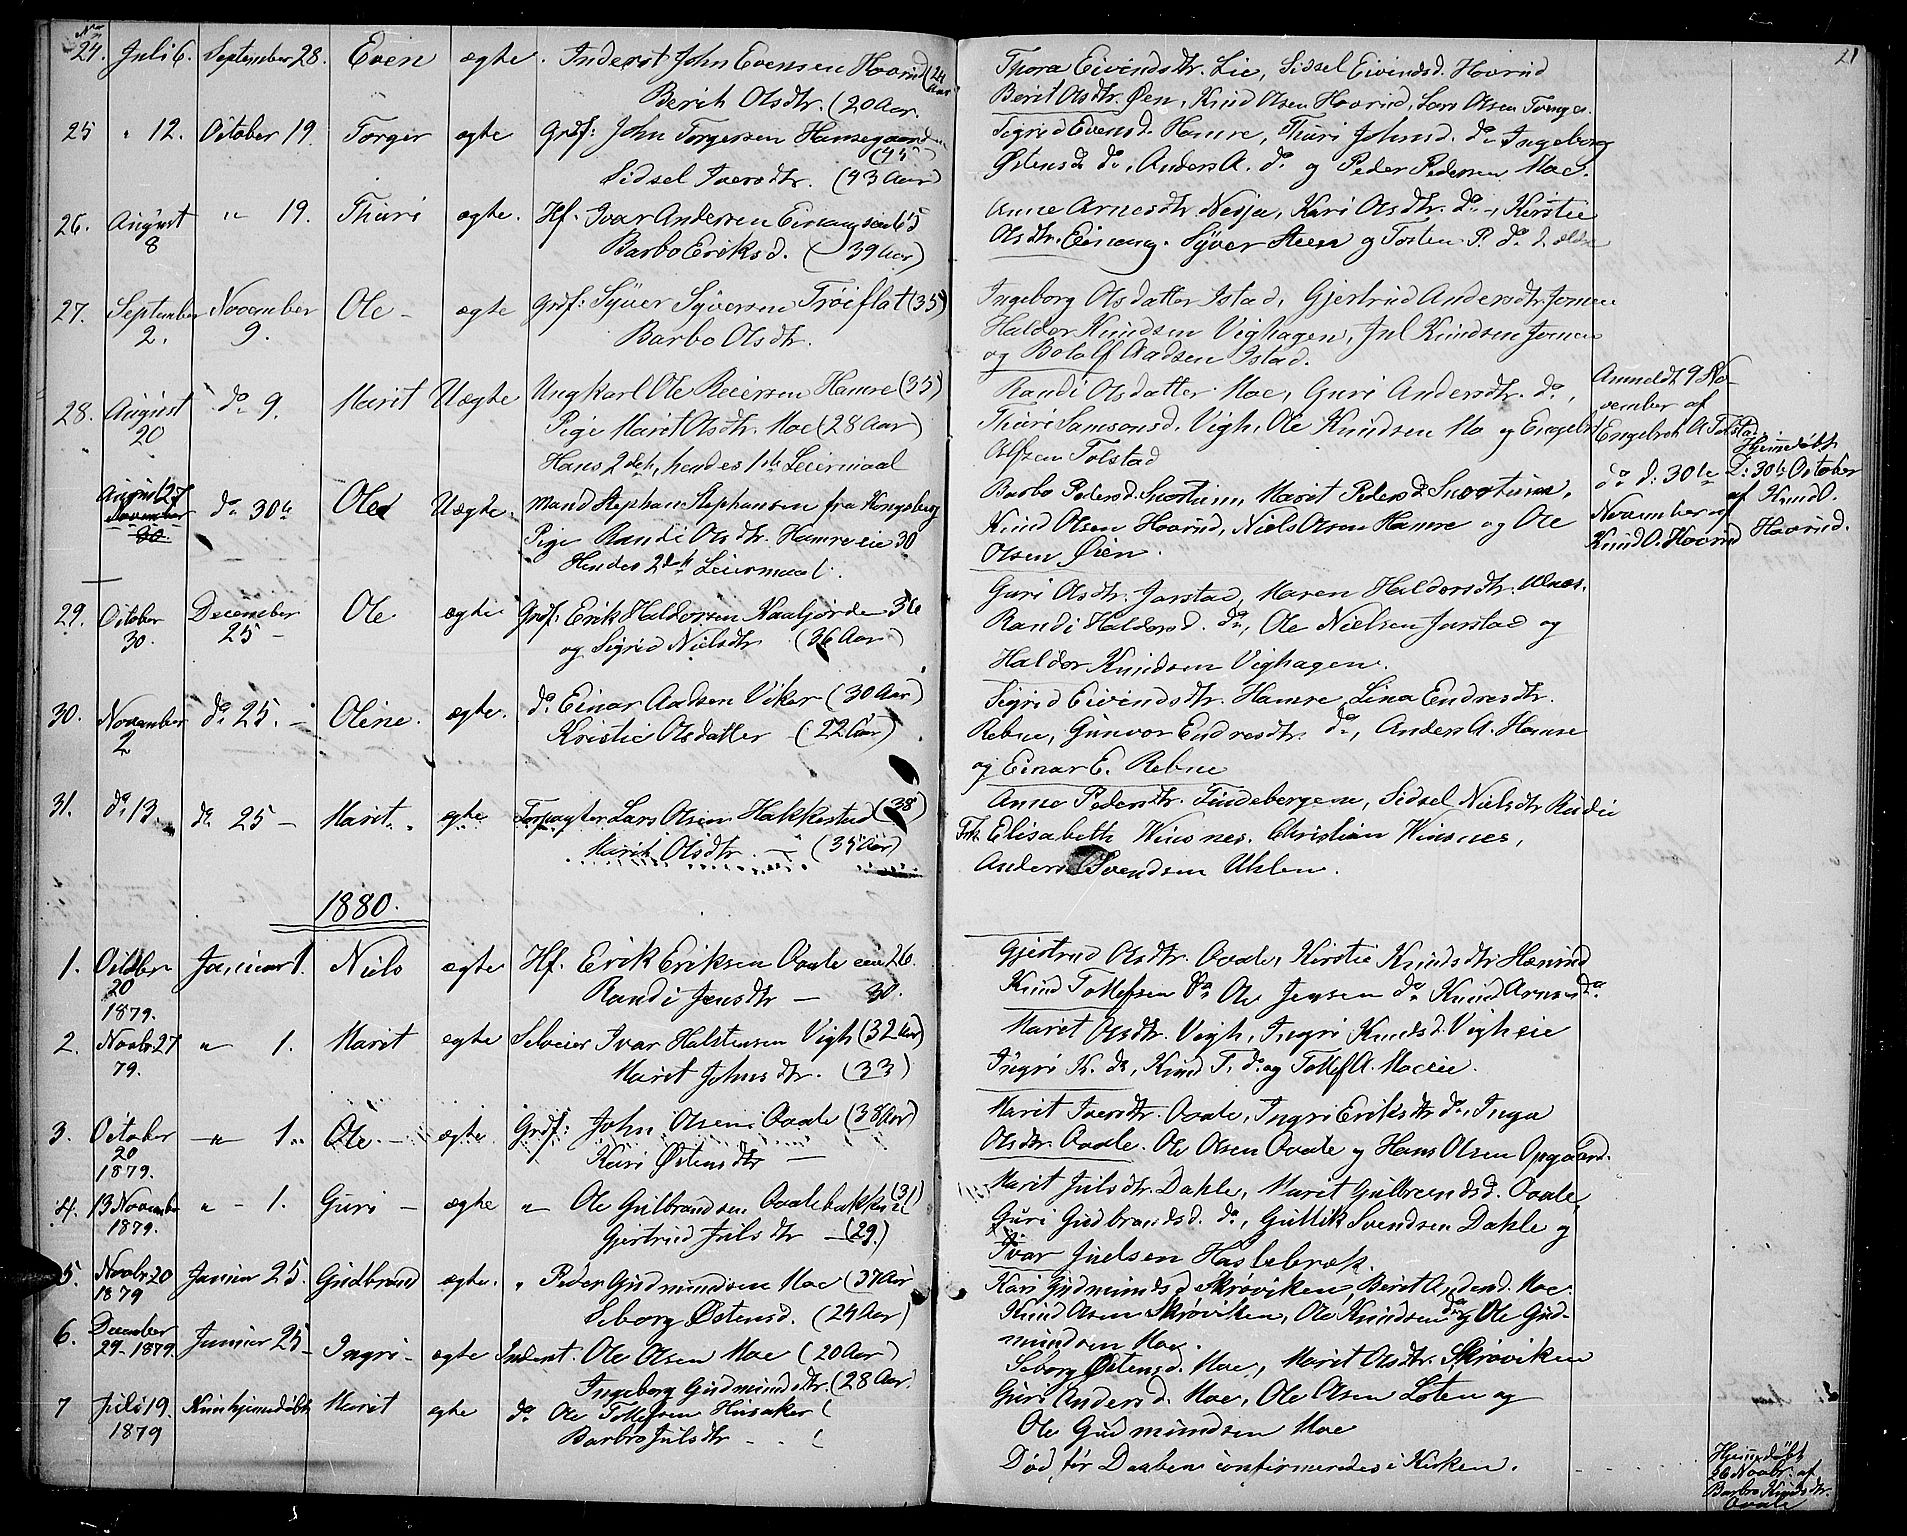 No
24. Juli 6. September 28. Even ægte. Inderst John Evensen Hovrud (24 Aar)
Berith Olsdtr. (20 Aar.
25 " 12. October 19. Torger ægte Grdf: John Torgersen Hamsegaard
(45)
Sidsel Iversdtr. (43 Aar)
26. August 8 " 19. Thuri ægte. Hf. Ivar Andersen Einangseie 65
Barbo Eriksd. (39 Aar)
27. September 2. November 9. Ole - ægte Grdf: Syver Syversen Trøiflat (35)
Barbo Olsdtr.
28. August 20 do 9. Marit Uægte Ungkarl Ole Reiersen Hamre (35)
Pige Marit Olsdtr. Moe (28 Aar)
Hans 2det, hendes 1ste Leiermaal
August 27 November 30. do 30te Ole Uægte. Mand Stephan Stephansen fra Kongsberg
Pige Randi Olsdtr. Hamreeie 30
Hendes 2det Leiermaal.
29. October 30. December 25 - Ole ægte Grdf: Erik Haldorsen Naafjorde 36
og Sigrid Nielsdtr (36 Aar)
30. November 2 do 25. - Oline. ægte. do Einar Aadsen Viker (30 Aar)
Kristie Olsdatter - (22 Aar)
31. do 13. do 25 - Marit. ægte Forpagter Lars Olsen Hakkestad (38)
Marit Olsdtr. - (35 Aar)
1880.
1. Octbr 20 1879. Januar 1. Niels ægte Hf. Erik Eriksen Ovale eie 26.
Randi Jensdtr - 30.
2. Novbr 27 79. " 1. Marit ægte Selveier Ivar Halstensen Vigh (32 Aar)
Marit Johnsdtr. (33)
3. October 20 1879. -"- 1. Ole - ægte. Grdf: John Olsen Ovale (38 Aar)
Kari Østensdtr -
4. 13 November 1879. " - 1. Guri - ægte " Ole Gulbrandsen Ovalebakken (31)
Gjertrud Julsdtr - (29.)
5. Novbr 20 1879 Januar 25. Gudbrand ægte. " Peder Gudmundsen Moe (37 Aar
Seborg Østensd. (24 Aar)
6. December 29 - 1879. Januar 25 - Ingri - ægte Inderst. Ole Olsen Moe (20 Aar)
Ingeborg Gudmundsdtr. (28 Aar.
7 Juli 19. 1879 Kun hjemmedøbt Marit ægte do Ole Tollefsen Husaker (
Barbro Julsdtr - . . (
21
Thora Eivindsdtr. Lie, Sidsel Eivindsd. Hovrud
Berit Olsdtr. Øen, Knud Olsen Hovrud, Lars Olsen Tvenge.
Sigrid Evensd. Hamre, Thuri Johnsd. do Ingeborg
Østensd. do, Anders A. do og Peder Pedersen Moe.
Anne Arnesdtr Nesja, Kari Olsdtr. do -, Kirstie
Olsdtr. Einang. Syver Steen og Tosten P. do d. ældre
Ingeborg Olsdatter Istad, Gjertrud Andersdtr. Jomen
Haldor Knudsen Vighagen, Jul Knudsen Jomen
og Botolf Aadsen Istad.
Randi Olsdatter Moe, Guri Andersdtr. do,
Thuri Samsonsd. Vigh, Ole Knudsen Mo og Engebret
Alfsen Tolstad
Anmeldt 9 No-
vember af
Engebret A. Tolstad.
Barbo Pedersd. Snortum, Marit Pedersd. Snortum,
Knud Olsen Hovrud, Niels Olsen Hamre og Ole
Olsen Øien.
do d: 30te
November af
Knud O. Hovrud
Hjemmedøbt
D: 30te October
af Knud O.
Hovrud.
Guri Olsdtr. Jarstad, Maren Haldorsdtr. Ulnæs.
Randi Haldorsd. do, Ole Nielsen Jarstad og
Haldor Knudsen Vighagen.
Sigrid Eivindsdtr. Hamre, Lina Endresdtr.
Rebne, Gunvor Endresdtr. do, Anders A. Hamre
og Einar E. Rebne
Anne Pedersdtr. Lindebergene, Sidsel Nielsdtr Rudii
Frk. Elisabeth Winsnes. Christian Winsnes,
Anders Svendsen Uhlen.
Gjertrud Olsdtr. Ovale, Kirstie Knudsdtr. Hænrud
Knud Tollefsen do Ole Jensen do Knud Arnesen do
Marit Olsdtr. Vigh, Ingri Knudsd. Vigheie
Ingri K. do, Knud T. do og Tollef A. Moeeie.
Marit Iversdtr. Ovale, Ingri Eriksdtr do, Inga
Olsdtr. Ovale. Ole Olsen Ovale og Hans Olsen Opgaard.
Marit Julsdtr. Dahle, Marit Gulbrandsd. Ovale,
Guri Gudbrandsd. do, Gullik Svendsen Dahle og
Ivar Juelsen Haslebræk.
Kari Gudmundsd. Skrøviken, Berit Andersd. Moe.
Knud Olsen Skrøviken, Ole Knudsen do og Ole Gud-
mundsen Moe.
Seborg Østensd. Moe, Marit Olsdtr. Skrøviken
Guri Andersd. Moe, Ole Olsen Loten og
Ole Gudmundsen Moe
Død før Daaben confirmeredes i Kirken.
Hjemmedøbt
26 Novbr. af
Barbro Knudsdtr.
Ovale